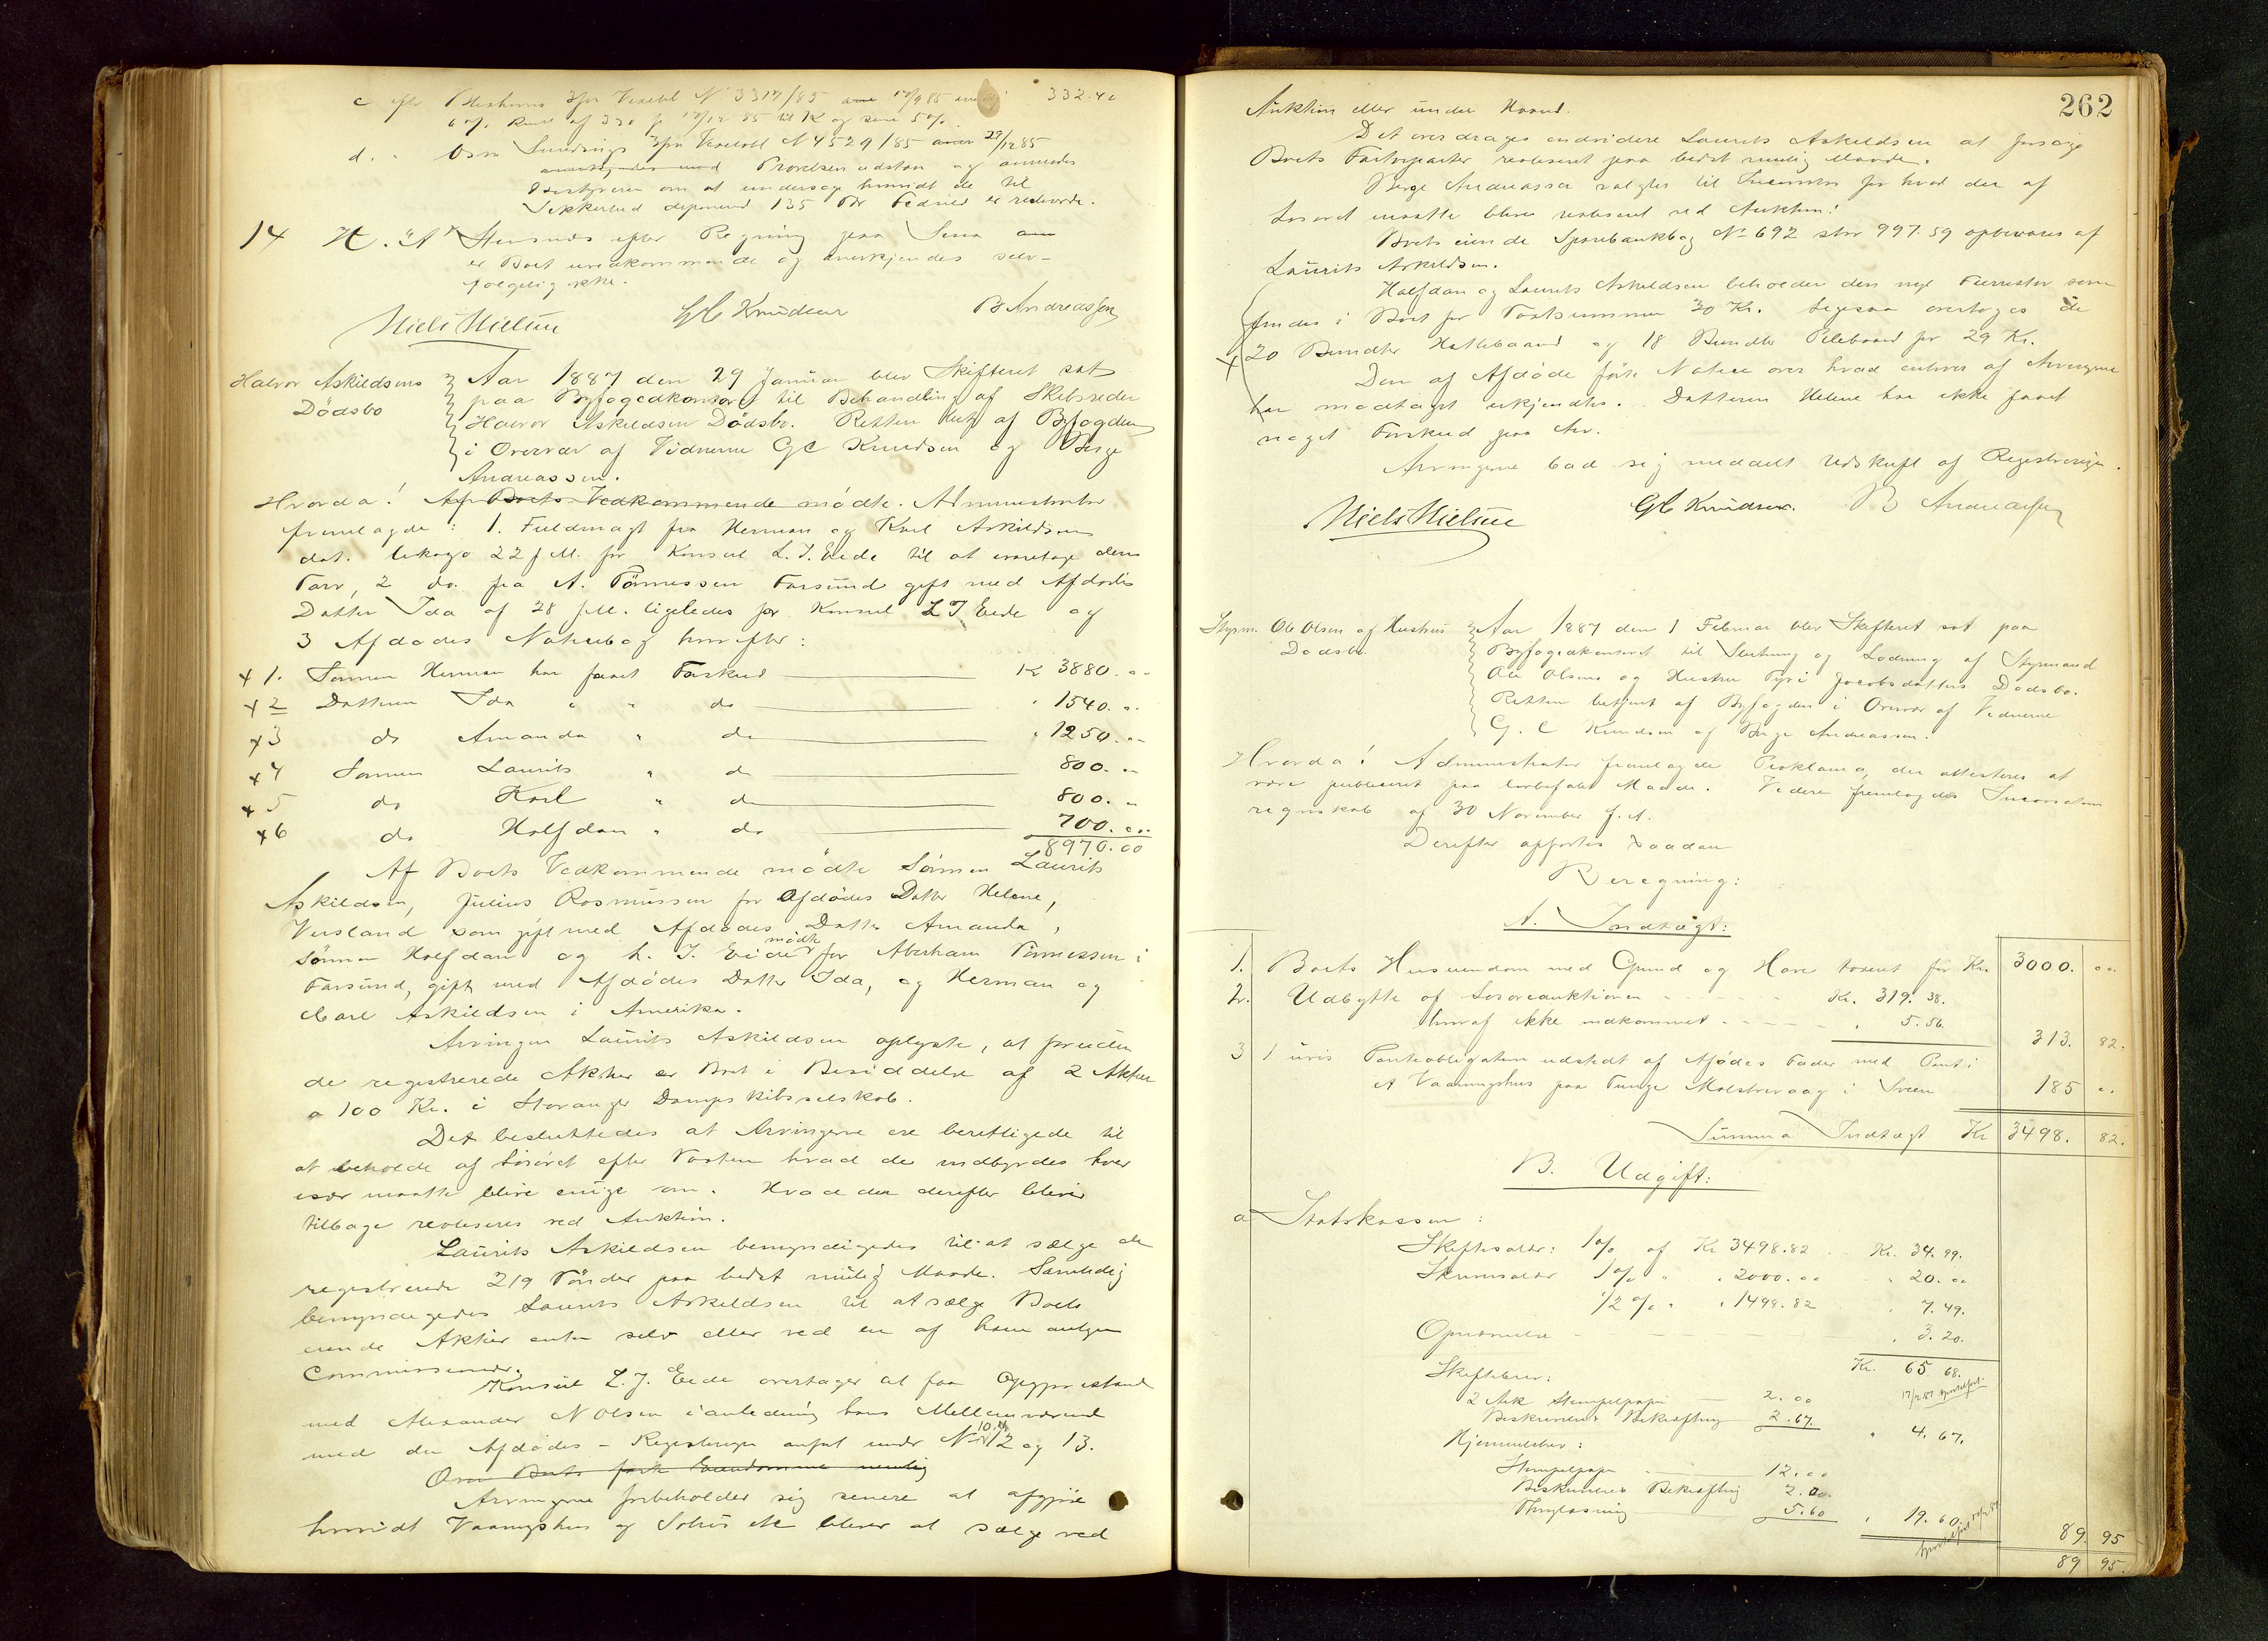 c efter 3/m Vexelobl N 3317/85 17/9 85 332.40
6 % Rente af 330 fr 17/12 85 til K og sene 5%.
d. " 3/m Vexelobl N 4529/85 29/12 85
Prøvelsen udstaar og anmodes
Bestyreren om at undersøge hvorvidt de til
Sikkerhed deponered 135 er
14 H. "A" efter Regning paa
er Boet uvedkommende og anerkjendes selv-
følgelig ikke.
Niels Nielsen GC Knudsen B Andreassen
Halvor Askildsens
Dødsbo
Aar 1887 den 29 Januar blev Skifteret sat
paa Byfogedkontoret til Behandling af Skibsreder
Halvor Askildsens Dødsbo. Retten bet. af Byfogden
i Overvær af Vidnerne GC Knudsen og Børge
Andreassen.
Hvorda! Af Boets Vedkommende mødte. Administrator
fremlagde: 1. Fuldmagt fra Herman og Karl Askildsen
dat. 22 f.M. for Konsul L. J. Eide til at varetage deres
Tarv, 2 do. fra A. Tønnessen Farsund gift med Afdødes
Datter Ida af 28 f.M. ligeledes for Konsul L J Eide og
3 Afdødes Notitsbog hvorefter:
x 1. Sønnen Herman har faaet Forskud K 3880. "
x 2 Datteren Ida " " do " 1540. "
x 3 do Amanda " do " 1250. "
x 4 Sønnen Laurits " do 800. "
x 5 do Karl " do 800. "
x 6 do Halfdan " do 700. 00
8970.00
Af Boets Vedkommende mødte Sønnen Laurits
Askildsen, Julius Rasmussen for Afdødes Datter Helene,
Versland som gift med Afdødes Datter Amanda,
Sønnen Halfdan og L. J. Eide mødte for Abraham Tønnessen i
Farsund, gift med Afdødes Datter Ida, og Herman og
Carl Askildsen i Amerika.
Arvingen Laurits Askildsen oplyste, at foruden
de registrerede Aktier er Boet i Besiddelse af 2 Aktier
a 100 Kr. i Stavanger Dampskibsselskab.
Det besluttedes at Arvingerne ere berettigede til
at beholde af Løsøret efter Taxten hvad de indbyrdes hver
især maatte blive enige om. Hvad der derefter bliver
tilbage realiseres ved Auktion.
Laurits Askildsen bemyndigedes til at sælge de
registrerede 219 Tønder paa bedst mulig Maade. Samtidig
bemyndigedes Laurits Askildsen til at sælge Boets
eiende Aktier enten selv eller ved en af ham antagen
Commissionær.
Konsul L. J. Eide overtager at faa Opgjør istand
med Alexander N Olsen i anledning hans Mellemværende
med den Afdødes - Registreringen anført under No 10. 12 og 13.
Arvingerne forbeholder sig senere at afgjøre
hvorvidt Vaaningshus og Søhus etc bliver at sælge ved
262
Auktion eller under Haand.
Det overdrages endvidere Laurits Askildsen at forsøge
Boets Partsparter realiseret paa bedst mulig Maade.
Børge Andreassen valgtes til Incassator for hvad der af
Løsøret maatte blive realiseret ved Auktion!
Boets eiende Sparebankbog No 692 stor 997.59 opbevares af
Laurits Askildsen.
Halfdan og Laurits Askildsen beholder den nye som
findes i Boet for Taxtsummen 30 Kr. Ligesaa overtages de
x 20 Bundter og 18 Bundter for 29 Kr.
Den af Afdøde førte Notice over hvad enhver af Arvingerne
har modtaget erkjendtes. Datteren Helene har ikke faaet
noget Forskud paa Arv.
Arvingerne bad sig meddelt Udskrift af Registreringen.
Niels Nielsen GC Knudsen. B Andreassen
Styrm. Ole Olsen og Hustrus
Dødsbo.
Aar 1887 den 1 Februar blev Skifteret sat paa
Byfogedkontoret til Slutning og Lodning af Styrmand
Ole Olsens og Hustru Jacobsdatters Dødsbo.
Retten betjent af Byfogden i Overvær af Vidnerne
G. C Knudsen og Børge Andreassen.
Hvorda! Administrator fremlagde Proklama, der attesteres at
være publiceret paa lovbefalet Maade. Videre fremlagdes Incassations
regnskab af 30 November f. A.
Derefter opførtes saadan
Beregning:
A. Indtægt:
1. Boets Huseiendom med Grund og Have taxeret for Kr. 3000. 00
2. Udbytte af Løsøreauktionen Kr. 319. 38.
hvoraf ikke indkommet " 5. 56. 313. 82.
3 1 uvis Panteobligation udstedt af Afdødes Fader med Pant i
et Vaaningshus paa Tunge i 185 "
Summa Indtægt Kr 3498. 82.
B. Udgift:
a Statskassen:
Skiftesalær: 1 % af Kr 3498.82 Kr. 34. 99.
1 % " " 2000.00 " 20. 00
1/2 % " " 1498.82 " 7. 49.
" 3. 20.
Kr. 65. 68.
Skiftebrev:
2 Ark Stempelpapir 2. 00
Beskrivelse Bekræftning 2. 67. " 4. 67.
Hjemmelsbrev:
Stempelpapir 12. 00
Beskrivelse Bekræftning 2. 00.
Thinglæsning 5. 60 " 19. 60. 89 95
89 95.